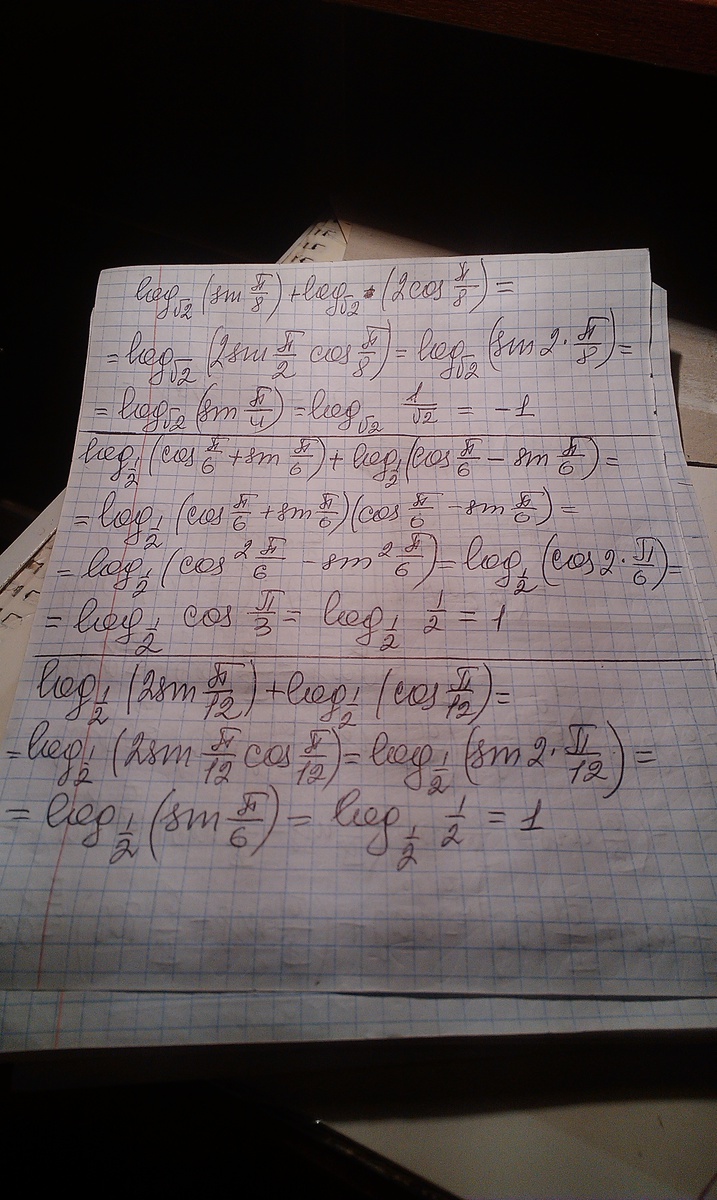 log_√2 (sin π/8) + log_√2 (2cos π/8) =
= log_√2 (2sin π/2 cos π/8) = log_√2 (sin 2·π/8) =
= log_√2 (sin π/4) = log_√2 1/√2 = -1
log_1/2 (cos π/6 + sin π/6) + log_1/2 (cos π/6 - sin π/6) =
= log_1/2 (cos π/6 + sin π/6)(cos π/6 - sin π/6) =
= log_1/2 (cos² π/6 - sin² π/6) = log_1/2 (cos 2·π/6) =
= log_1/2 cos π/3 = log_1/2 1/2 = 1
log_1/2 (2sin π/12) + log_1/2 (cos π/12) =
= log_1/2 (2sin π/12 cos π/12) = log_1/2 (sin 2·π/12) =
= log_1/2 (sin π/6) = log_1/2 1/2 = 1